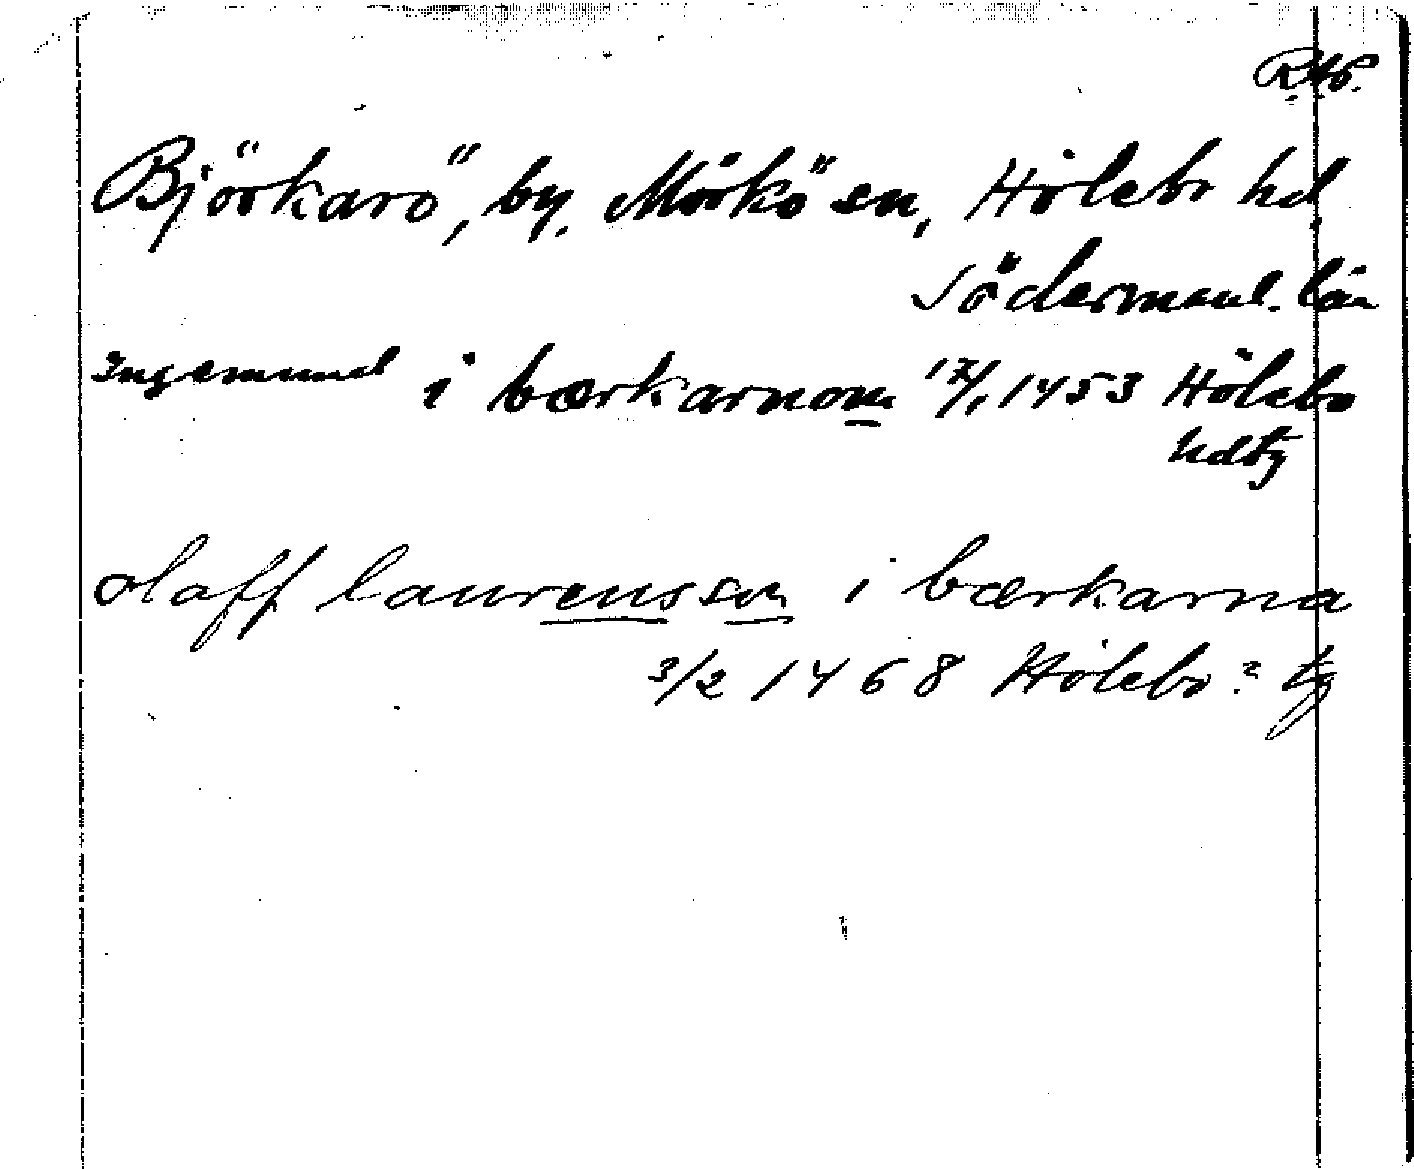 RAP.
Björkarö, by. Mörkö sn, Hölebo hd,
Södermanl. län
Ingemund i bærkarnom 17/1 1453 Hölebo
hdtg
olaff laurensson i bærkarna
3/2 1468 Hölebo? tg